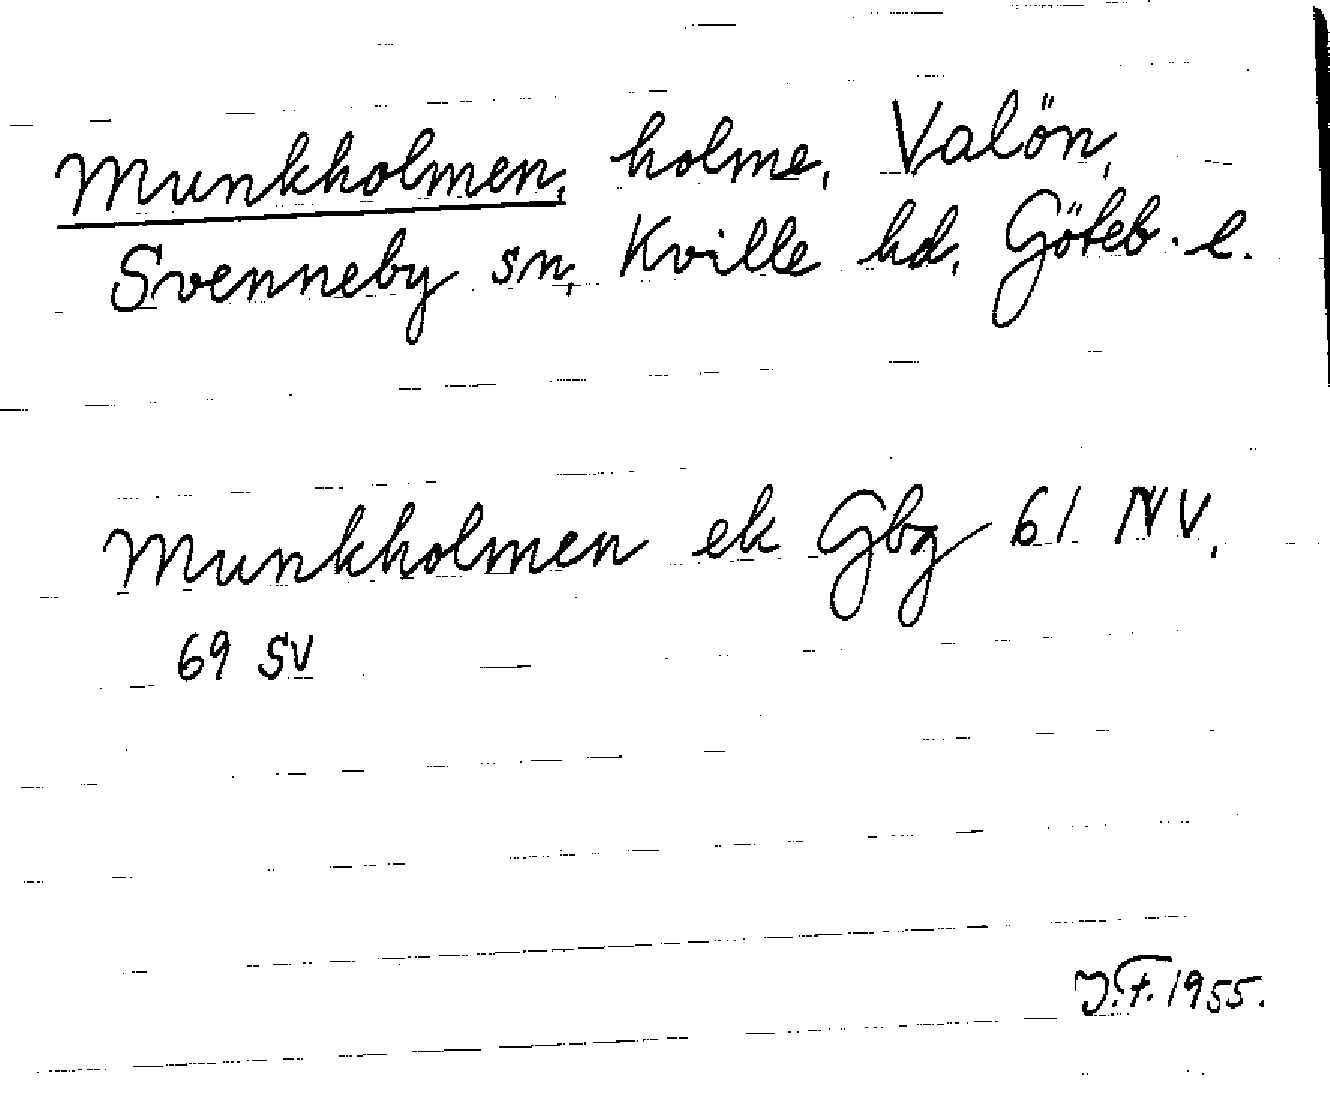 Munkholmen, holme, Valön,
Svenneby sn, Kville hd, Göteb. l.
Munkholmen ek Gbg 61 NV,
69 SV
J.F. 1955.